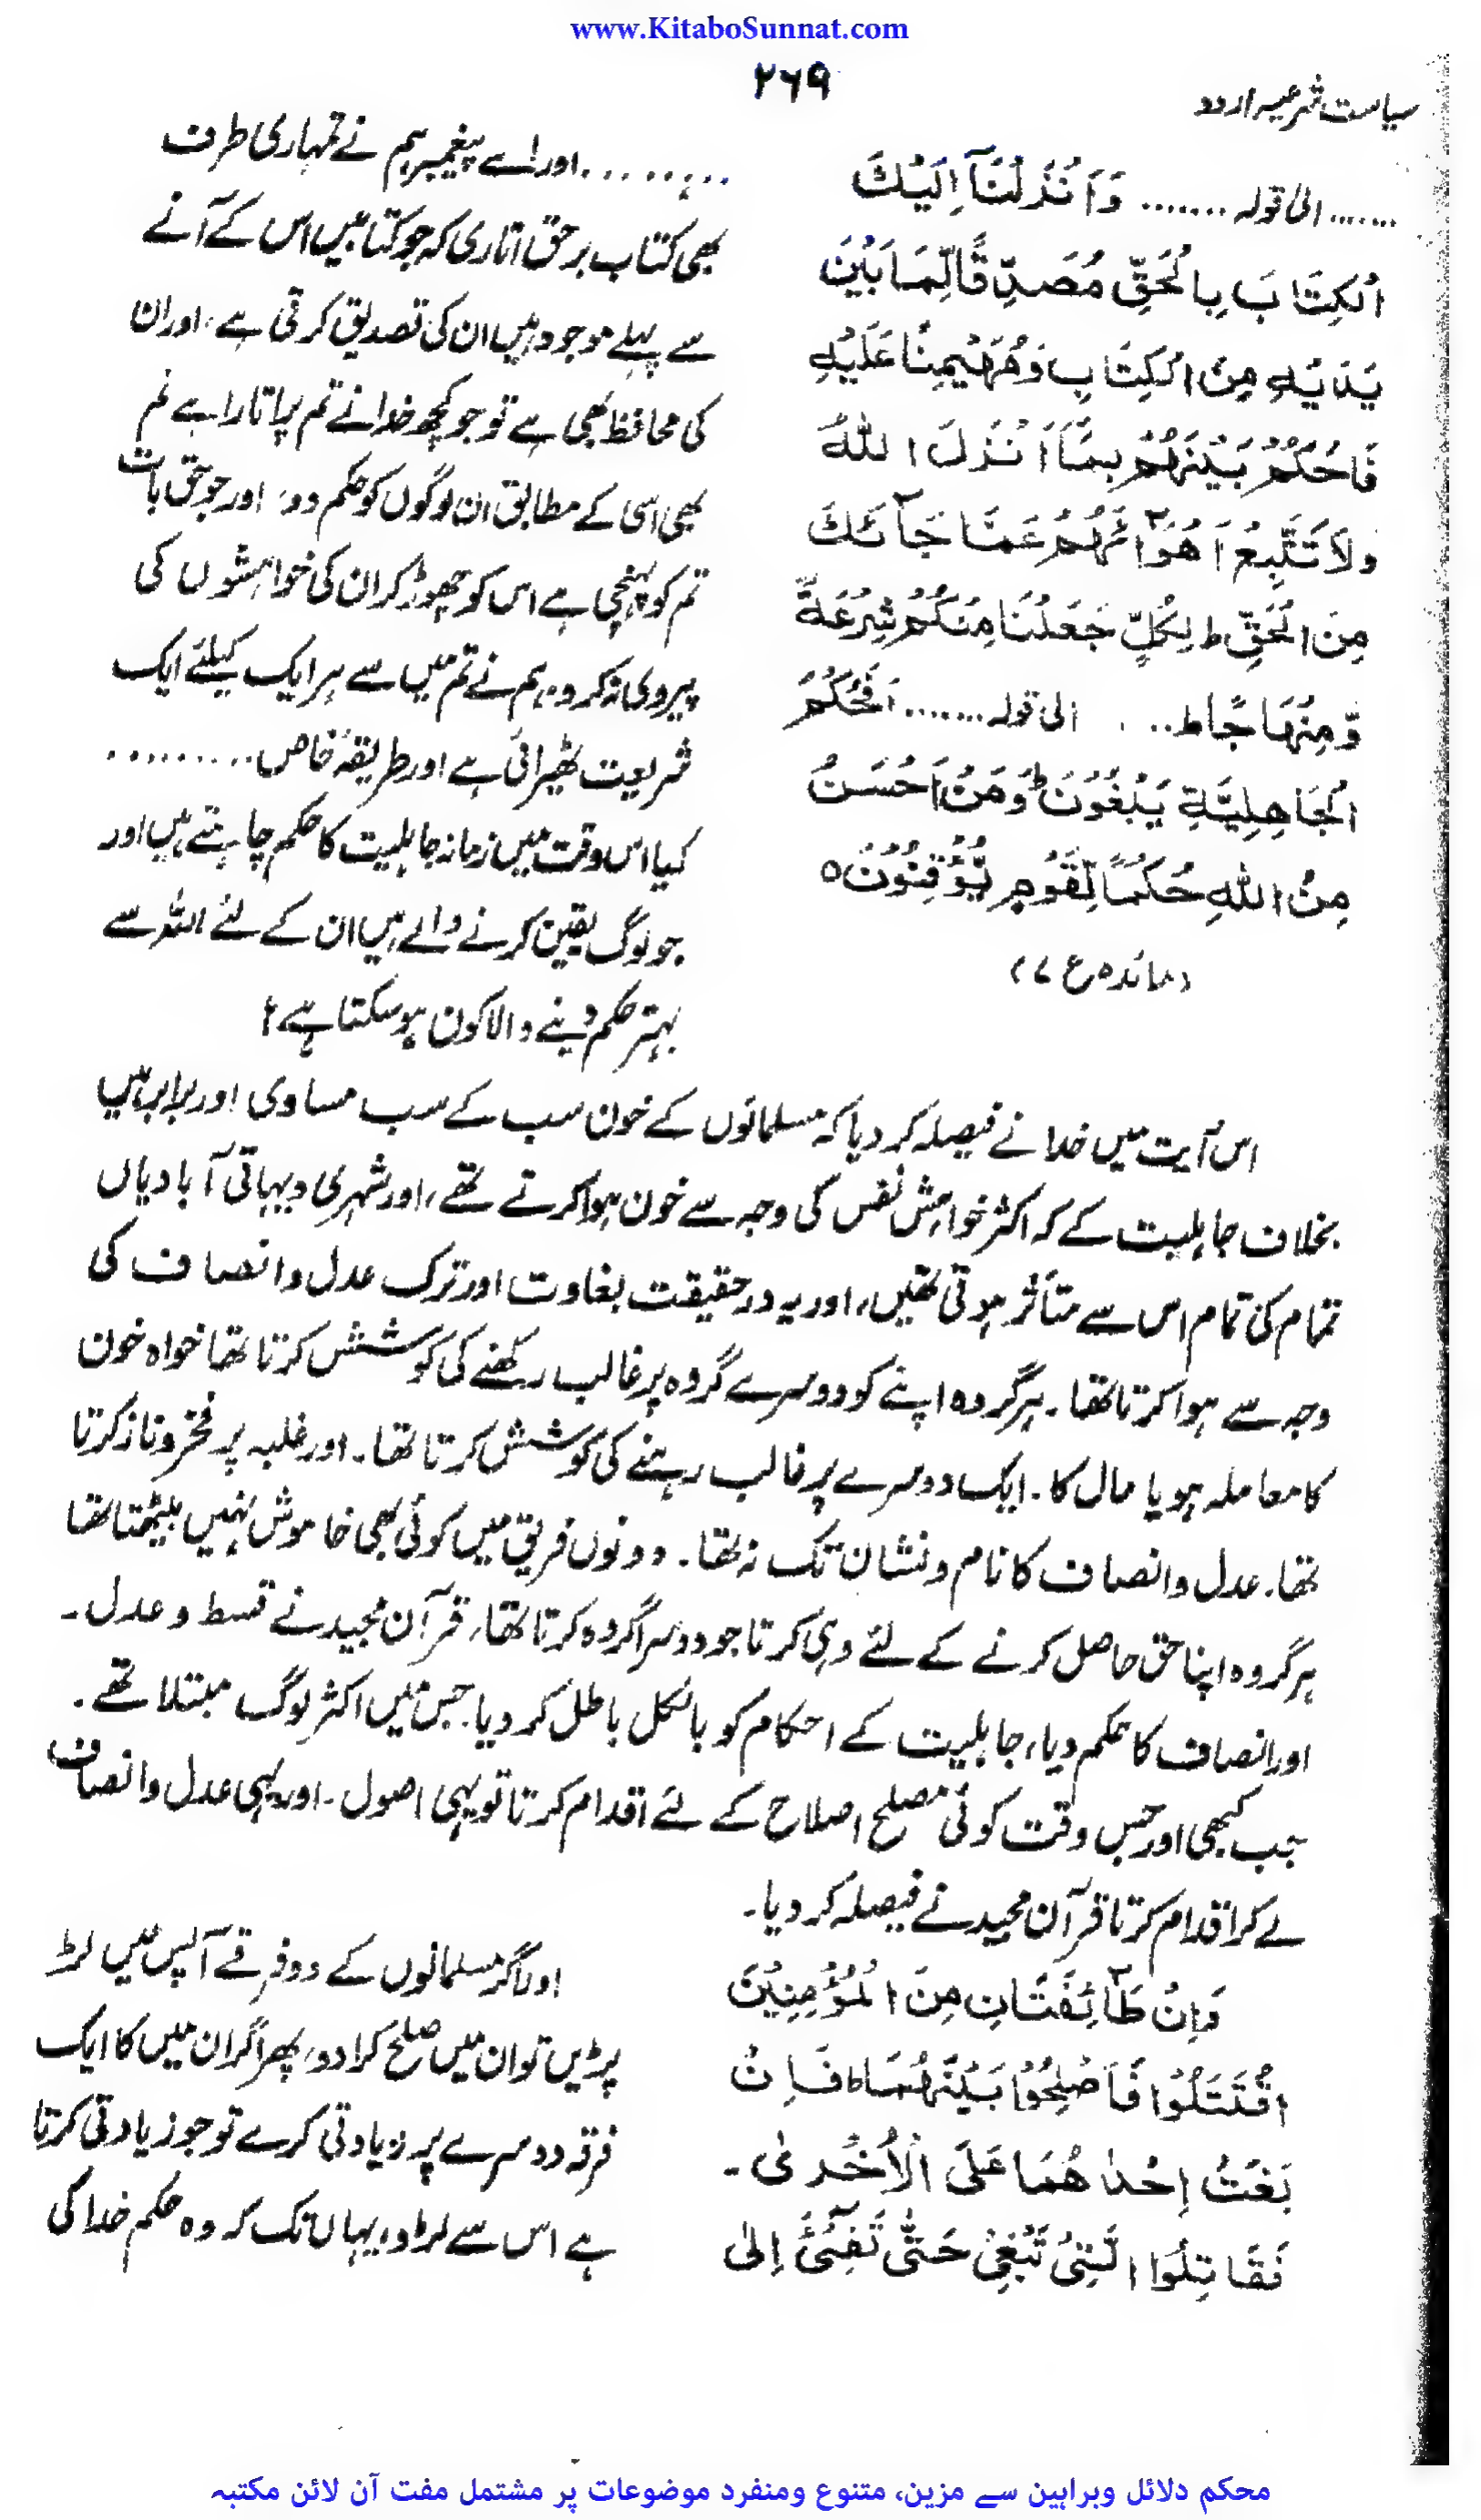 www.KitaboSunnat.com
۲۶۹
سیاست شرعیہ اردو
....... الیٰ قولہ ....... وَاَنْزَلْنَآ اِلَیْكَ
الْكِتَابَ بِالْحَقِّ مُصَدِّقًا لِّمَا بَیْنَ
یَدَیْهِ مِنَ الْكِتَابِ وَمُهَیْمِنًا عَلَیْهِ
فَاحْكُمْ بَیْنَهُمْ بِمَآ اَنْزَلَ اللهُ
وَلَا تَتَّبِعْ اَهْوَآئَهُمْ عَمَّا جَآئَكَ
مِنَ الْحَقِّ ط لِكُلٍّ جَعَلْنَا مِنْكُمْ شِرْعَةً
وَّمِنْهَاجًا ط... الی قولہ ....... اَفَحُكْمَ
الْجَاهِلِیَّةِ یَبْغُوْنَ ط وَمَنْ اَحْسَنُ
مِنَ اللهِ حُكْمًا لِّقَوْمٍ یُّوْقِنُوْنَ ٥
(مائدہ ع ۷)
.........اور اے پیغمبر ہم نے تمہاری طرف
بھی کتاب برحق اتاری کہ جو کتابیں اس کے آنے
سے پہلے موجود ہیں ان کی تصدیق کرتی ہے، اور ان
کی محافظ بھی ہے تو جو کچھ خدا نے تم پر اتارا ہے تم
بھی اسی کے مطابق ان لوگوں کو حکم دو، اور جو حق بات
تم کو پہنچی ہے اس کو چھوڑ کر ان کی خواہشوں کی
پیروی نہ کرو، ہم نے تم میں سے ہر ایک کیلئے ایک
شریعت ٹھیرائی ہے اور طریقۂ خاص .........
کیا اس وقت میں زمانہ جاہلیت کا حکم چاہتے ہیں اور
جو لوگ یقین کرنے والے ہیں ان کے لئے اللہ سے
بہتر حکم دینے والا کون ہو سکتا ہے؟
اس آیت میں خدا نے فیصلہ کر دیا کہ مسلمانوں کے خون سب کے سب مساوی اور برابر ہیں
بخلاف جاہلیت کے کہ اکثر خواہش نفس کی وجہ سے خون ہوا کرتے تھے، اور شہری دیہاتی آبادیاں
تمام کی تمام اس سے متأثر ہوتی تھیں، اور یہ درحقیقت بغاوت اور ترک عدل وانصاف کی
وجہ سے ہوا کرتا تھا۔ ہر گروہ اپنے کو دوسرے گروہ پر غالب رکھنے کی کوشش کرتا تھا خواہ خون
کا معاملہ ہو یا مال کا۔ ایک دوسرے پر غالب رہنے کی کوشش کرتا تھا۔ اور غلبہ پر فخر و ناز کرتا
تھا۔ عدل وانصاف کا نام ونشان تک نہ تھا۔ دونوں فریق میں کوئی بھی خاموش نہیں بیٹھتا تھا
ہر گروہ اپنا حق حاصل کرنے کے لئے وہی کرتا جو دوسرا گروہ کرتا تھا، قرآن مجید نے قسط و عدل۔
اور انصاف کا حکم دیا، جاہلیت کے احکام کو بالکل باطل کر دیا۔ جس میں اکثر لوگ مبتلا تھے۔
جب کبھی اور جس وقت کوئی مصلح اصلاح کے لئے اقدام کرتا تو یہی اصول۔ اور یہی عدل وانصاف
لے کر اقدام کرتا قرآن مجید نے فیصلہ کر دیا۔
وَاِنْ طَآئِفَتَانِ مِنَ الْمُؤْمِنِیْنَ
اقْتَتَلُوْا فَاَصْلِحُوْا بَیْنَهُمَا ہ فَاِنْ
بَغَتْ اِحْدٰ هُمَا عَلَی الْاُخْرٰی۔
فَقَاتِلُوا الَّتِیْ تَبْغِیْ حَتّٰی تَفِیْٓئَ اِلیٰ
اور اگر مسلمانوں کے دو فرقے آپس میں لڑ
پڑیں تو ان میں صلح کرا دو، پھر اگر ان میں کا ایک
فرقہ دوسرے پر زیادتی کرے تو جو زیادتی کرتا
ہے اس سے لڑو، یہاں تک کہ وہ حکم خدا کی
محکم دلائل وبراہین سے مزین، متنوع ومنفرد موضوعات پر مشتمل مفت آن لائن مکتبہ